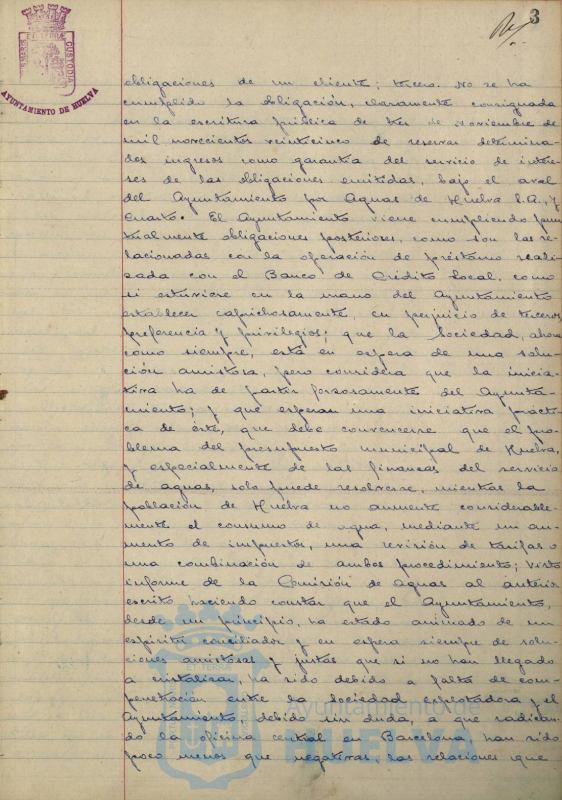 3
AYUNTAMIENTO DE HUELVA
obligaciones de un cliente; tercero. No se ha
cumplido la obligación, claramente consignada
en la escritura pública de tres de Noviembre de
mil novecientos veinticinco de reservar determina-
dos ingresos como garantía del servicio de intere-
ses de las obligaciones emitidas, bajo el aval
del Ayuntamiento por Aguas de Huelva S.A., y
Cuarto. El Ayuntamiento viene cumpliendo pun
tualmente obligaciones posteriores, como son las re-
lacionadas con la operación de préstamo reali-
zada con el Banco de Crédito Local, como
si estuviere en la mano del Ayuntamiento
establecer caprichosamente, en perjuicio de terceros
preferencia y privilegios; que la Sociedad, ahora
como siempre, está en espera de una solu-
ción amistosa, pero considera que la inicia-
tiva ha de partir forzosamente del Ayunta-
miento; y que esperan una iniciativa prácti-
ca de éste, que debe convencerse que el pro-
blema del presupuesto municipal de Huelva,
y especialmente de las finanzas del servicio
de aguas, solo puede resolverse, mientras la
población de Huelva no aumente considerable-
mente el consumo de agua, mediante un au-
mento de impuestos, una revisión de tarifas o
una combinación de ambos procedimientos; Visto
informe de la Comisión de Aguas al anterior
escrito, haciendo constar que el Ayuntamiento,
desde un principio, ha estado animado de un
espíritu conciliador y en espera siempre de solu-
ciones amistosas y justas que si no han llegado
a cristalizar, ha sido debido a falta de com-
penetración entre la Sociedad explotadora y el
Ayuntamiento; debido sin duda, a que radican-
do la oficina central en Barcelona, han sido
poco menos que negativas, las relaciones que
Ayuntamiento de
HUELVA